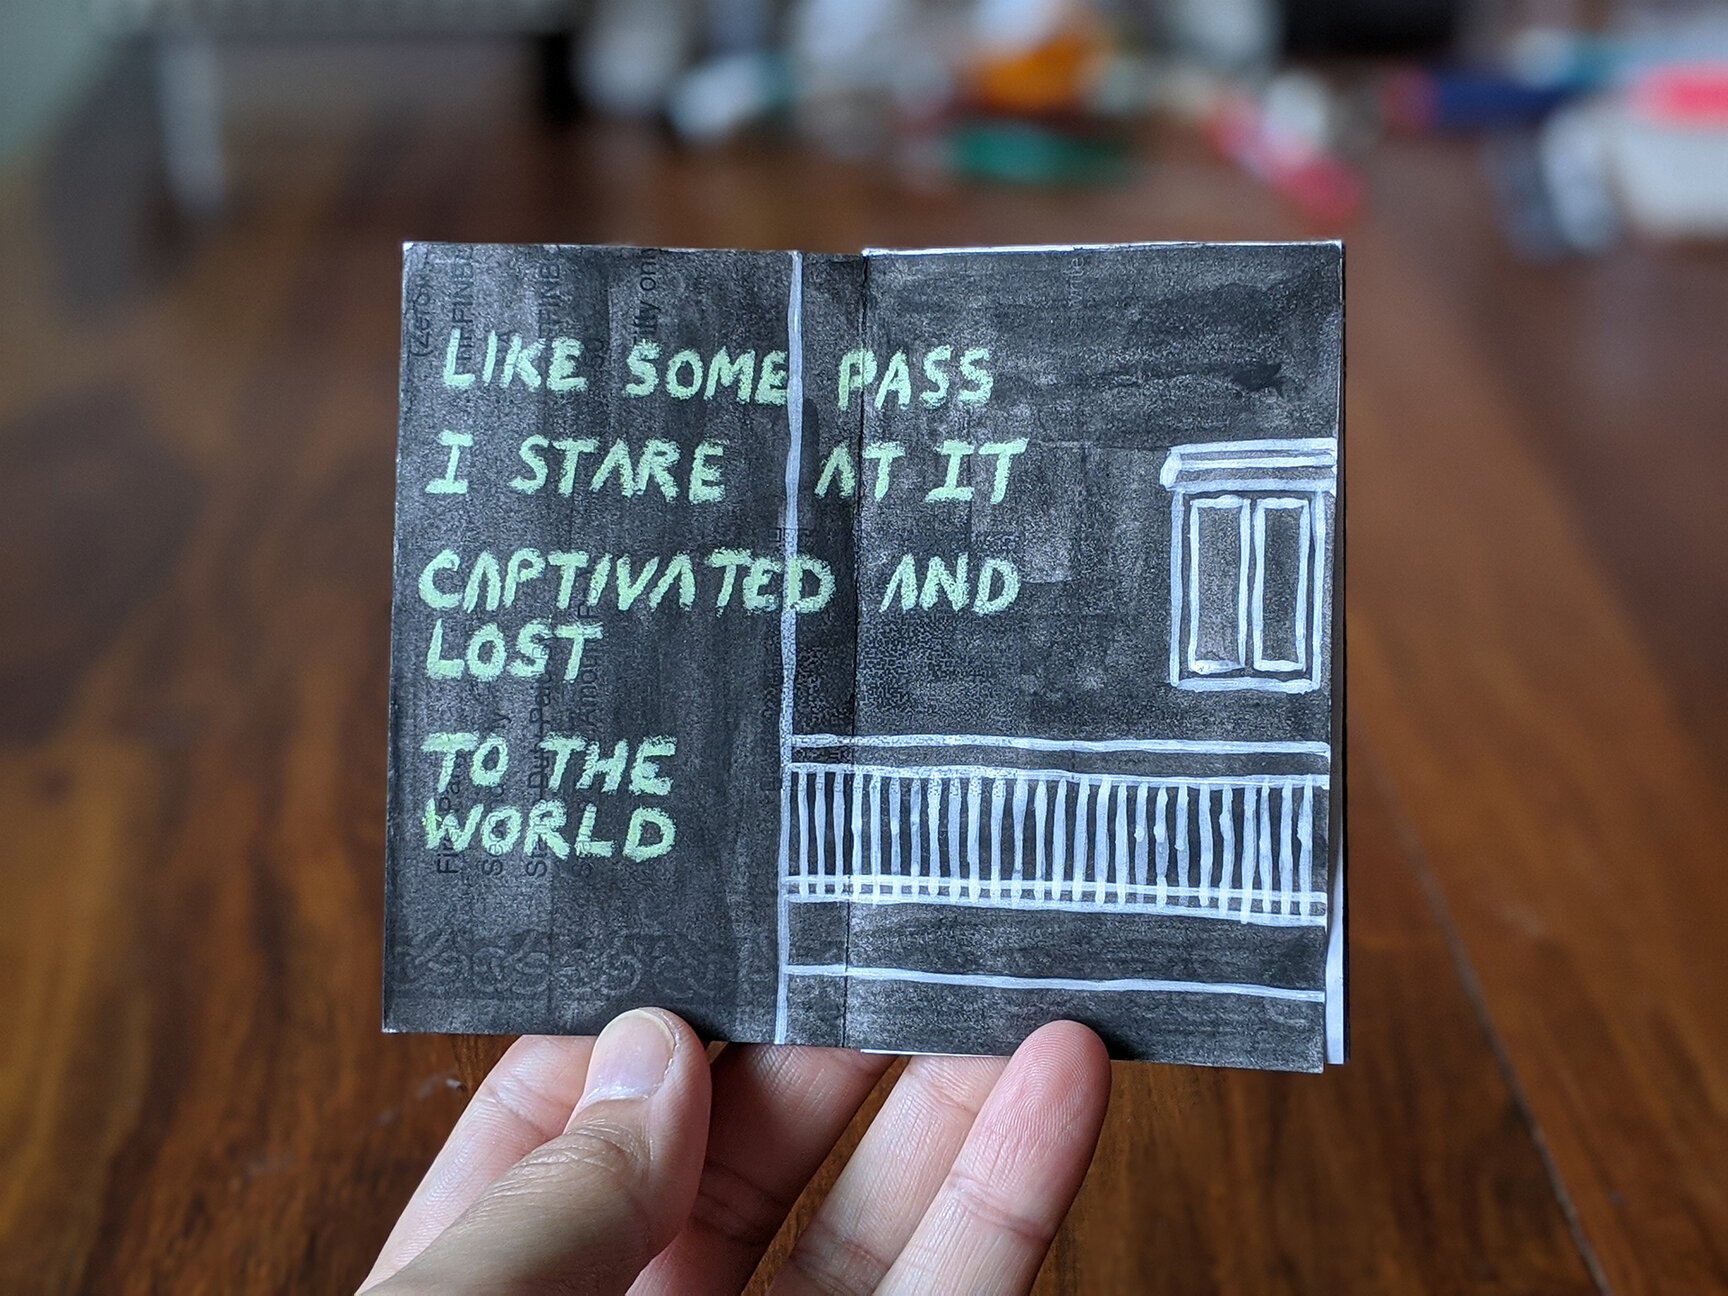 LIKE SOME PASS
I STARE AT IT
CAPTIVATED AND
LOST
TO THE
WORLD